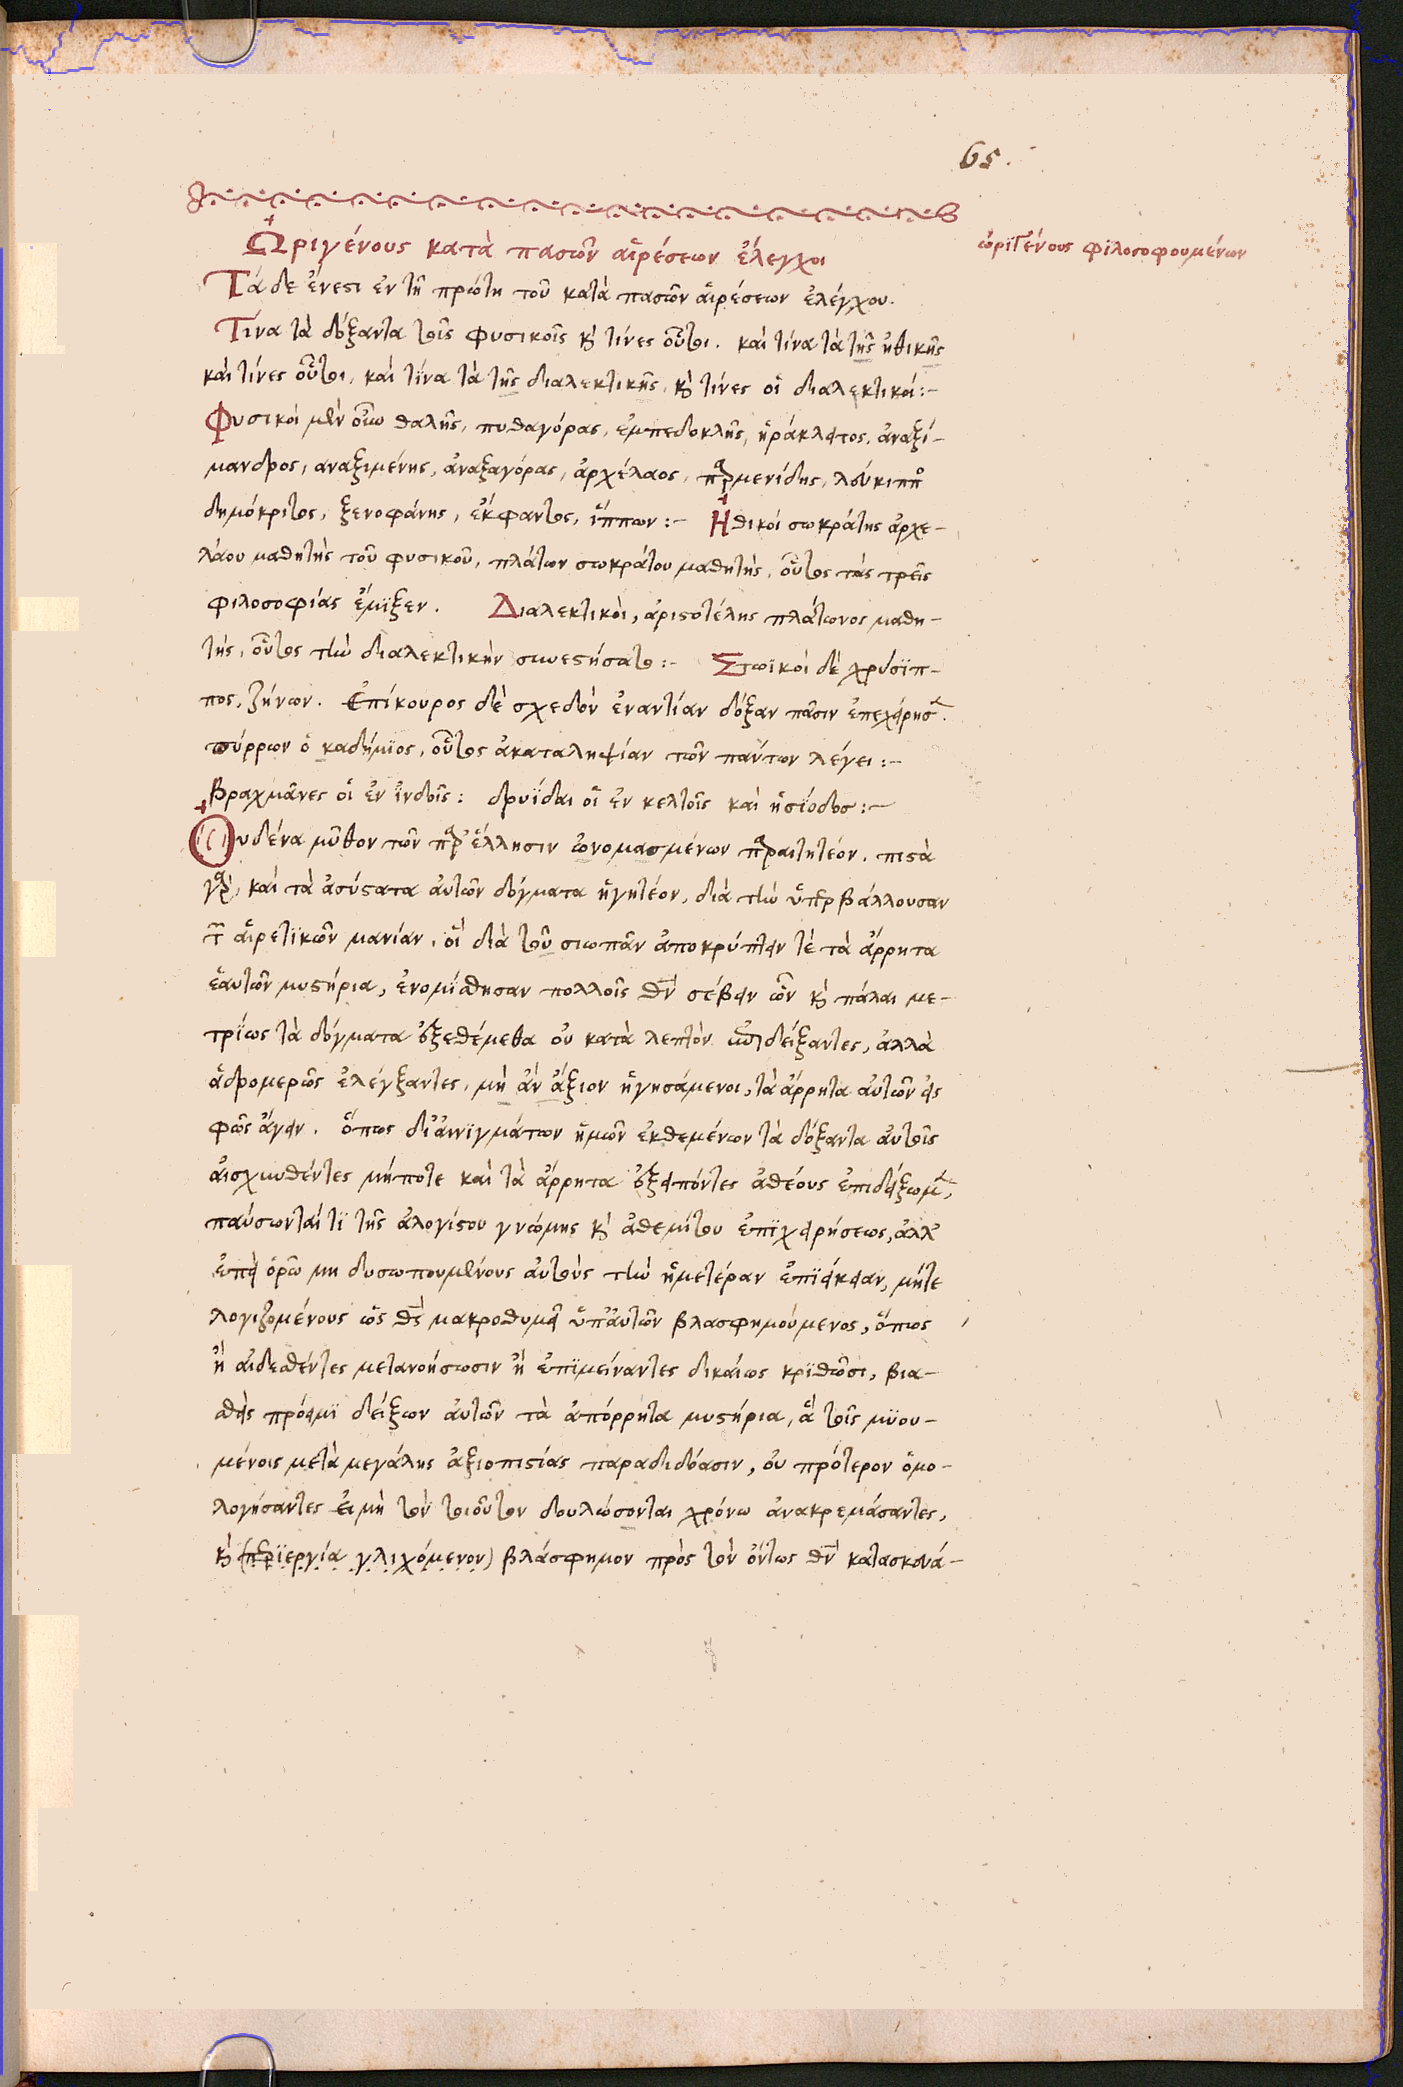 65.
Ὠριγένους κατὰ πασῶν αἱρέσεων ἔλεγχοι
ὠριγένους φιλοσοφουμένων
Τάδε ἔνεστι ἐν τῇ πρώτῃ τοῦ κατὰ πασῶν αἱρέσεων ἐλέγχου.
Τίνα τὰ δόξαντα τοῖς φυσικοῖς κ̀ τίνες οὗτοι. καὶ τίνα τὰ τῆς ἠθικῆς
καὶ τίνες οὗτοι, καὶ τίνα τὰ τῆς διαλεκτικῆς, κ̀ τίνες οἱ διαλεκτικοί:–
Φυσικοὶ μὲν οὖν θαλῆς, πυθαγόρας, ἐμπεδοκλῆς, ἡράκλειτος, ἀναξί–
μανδρος, αναξιμένης, ἀναξαγόρας, ἀρχέλαος, παρμενίδης, λεύκιππος
δημόκριτος, ξενοφάνης, ἔκφαντος, ἵππων:– Ἠθικοί σωκράτης ἀρχε–
λάου μαθητὴς τοῦ φυσικοῦ, πλάτων σωκράτου μαθητής, οὗτος τὰς τρεῖς
φιλοσοφίας ἔμϊξεν. Διαλεκτικοὶ, ἀριστοτέλης πλάτωνος μαθη–
τής, οὗτος τὴν διαλεκτικὴν συνεστήσατο:– Στωϊκοὶ δὲ χρύσϊπ–
πος, ζήνων. Ἐπίκουρος δὲ σχεδὸν ἐναντίαν δόξαν πᾶσιν ἐπεχείρησε.
πύρρων ὁ καδήμϊος, οὗτος ἀκαταληψίαν τῶν πάντων λέγει:–
Βραχμᾶνες οἱ ἐν ἰνδοῖς: δρυΐδαι οἱ ἐν κελτοῖς καὶ ἡσίοδος:–
Οὐδένα μῦθον τῶν παρ' ἕλλησιν ὠνομασμένων παραιτητέον. πιστὰ
γὰρ, καὶ τὰ ἀσύστατα αὐτῶν δόγματα ἡγητέον, διὰ τὴν ὑπερβάλλουσαν
τῶν αἱρετϊκῶν μανίαν. οἳ διὰ τοῦ σιωπᾶν ἀποκρύπτειν τὲ τὰ ἄρρητα
ἑαυτῶν μυστήρια, ἐνομίσθησαν πολλοῖς θν̄ σέβειν ὧν κ̀ πάλαι με–
τρίως τὰ δόγματα ἐξεθέμεθα οὐ κατὰ λεπτὸν ἀποδείξαντες, ἀλλὰ
ἁδρομερῶς ἐλέγξαντες, μὴ ἂν ἄξιον ἡγησάμενοι, τὰ ἄρρητα αὐτῶν εἰς
φῶς ἄγειν. ὅπως δι' αἰνιγμάτων ἡμῶν ἐκθεμένων τὰ δόξαντα αὐτοῖς
αἰσχυνθέντες μήποτε καὶ τὰ ἄρρητα ἐξειπόντες ἀθέους ἐπιδείξωμεν,
παύσωνταί τϊ τῆς ἀλογίστου γνώμης κ̀ ἀθεμίτου ἐπϊχειρήσεως, ἀλλ'
ἐπεὶ ὁρῶ μη δυσωπουμένους αὐτοὺς τὴν ἡμετέραν ἐπϊείκειαν, μήτε
λογιζομένους ὡς θς̄ μακροθυμεῖ ὑπ' αὐτῶν βλασφημούμενος, ὅπως
ἢ αἰδεσθέντες μετανοήσωσιν ἢ ἐπϊμείναντες δικαίως κρϊθῶσι, βια–
σθεὶς πρόειμϊ δείξων αὐτῶν τὰ ἀπόρρητα μυστήρια, ἃ τοῖς μϋου–
μένοις μετὰ μεγάλης ἀξιοπιστίας παραδιδόασιν, οὐ πρότερον ὁμο–
λογήσαντες εἰ μὴ τὸν τοιοῦτον δουλώσονται χρόνω ἀνακρεμάσαντες,
κ̀ (περϊεργία γλιχόμενον) βλάσφημον πρὸς τὸν ὄντως θν̄ κατασκευά–